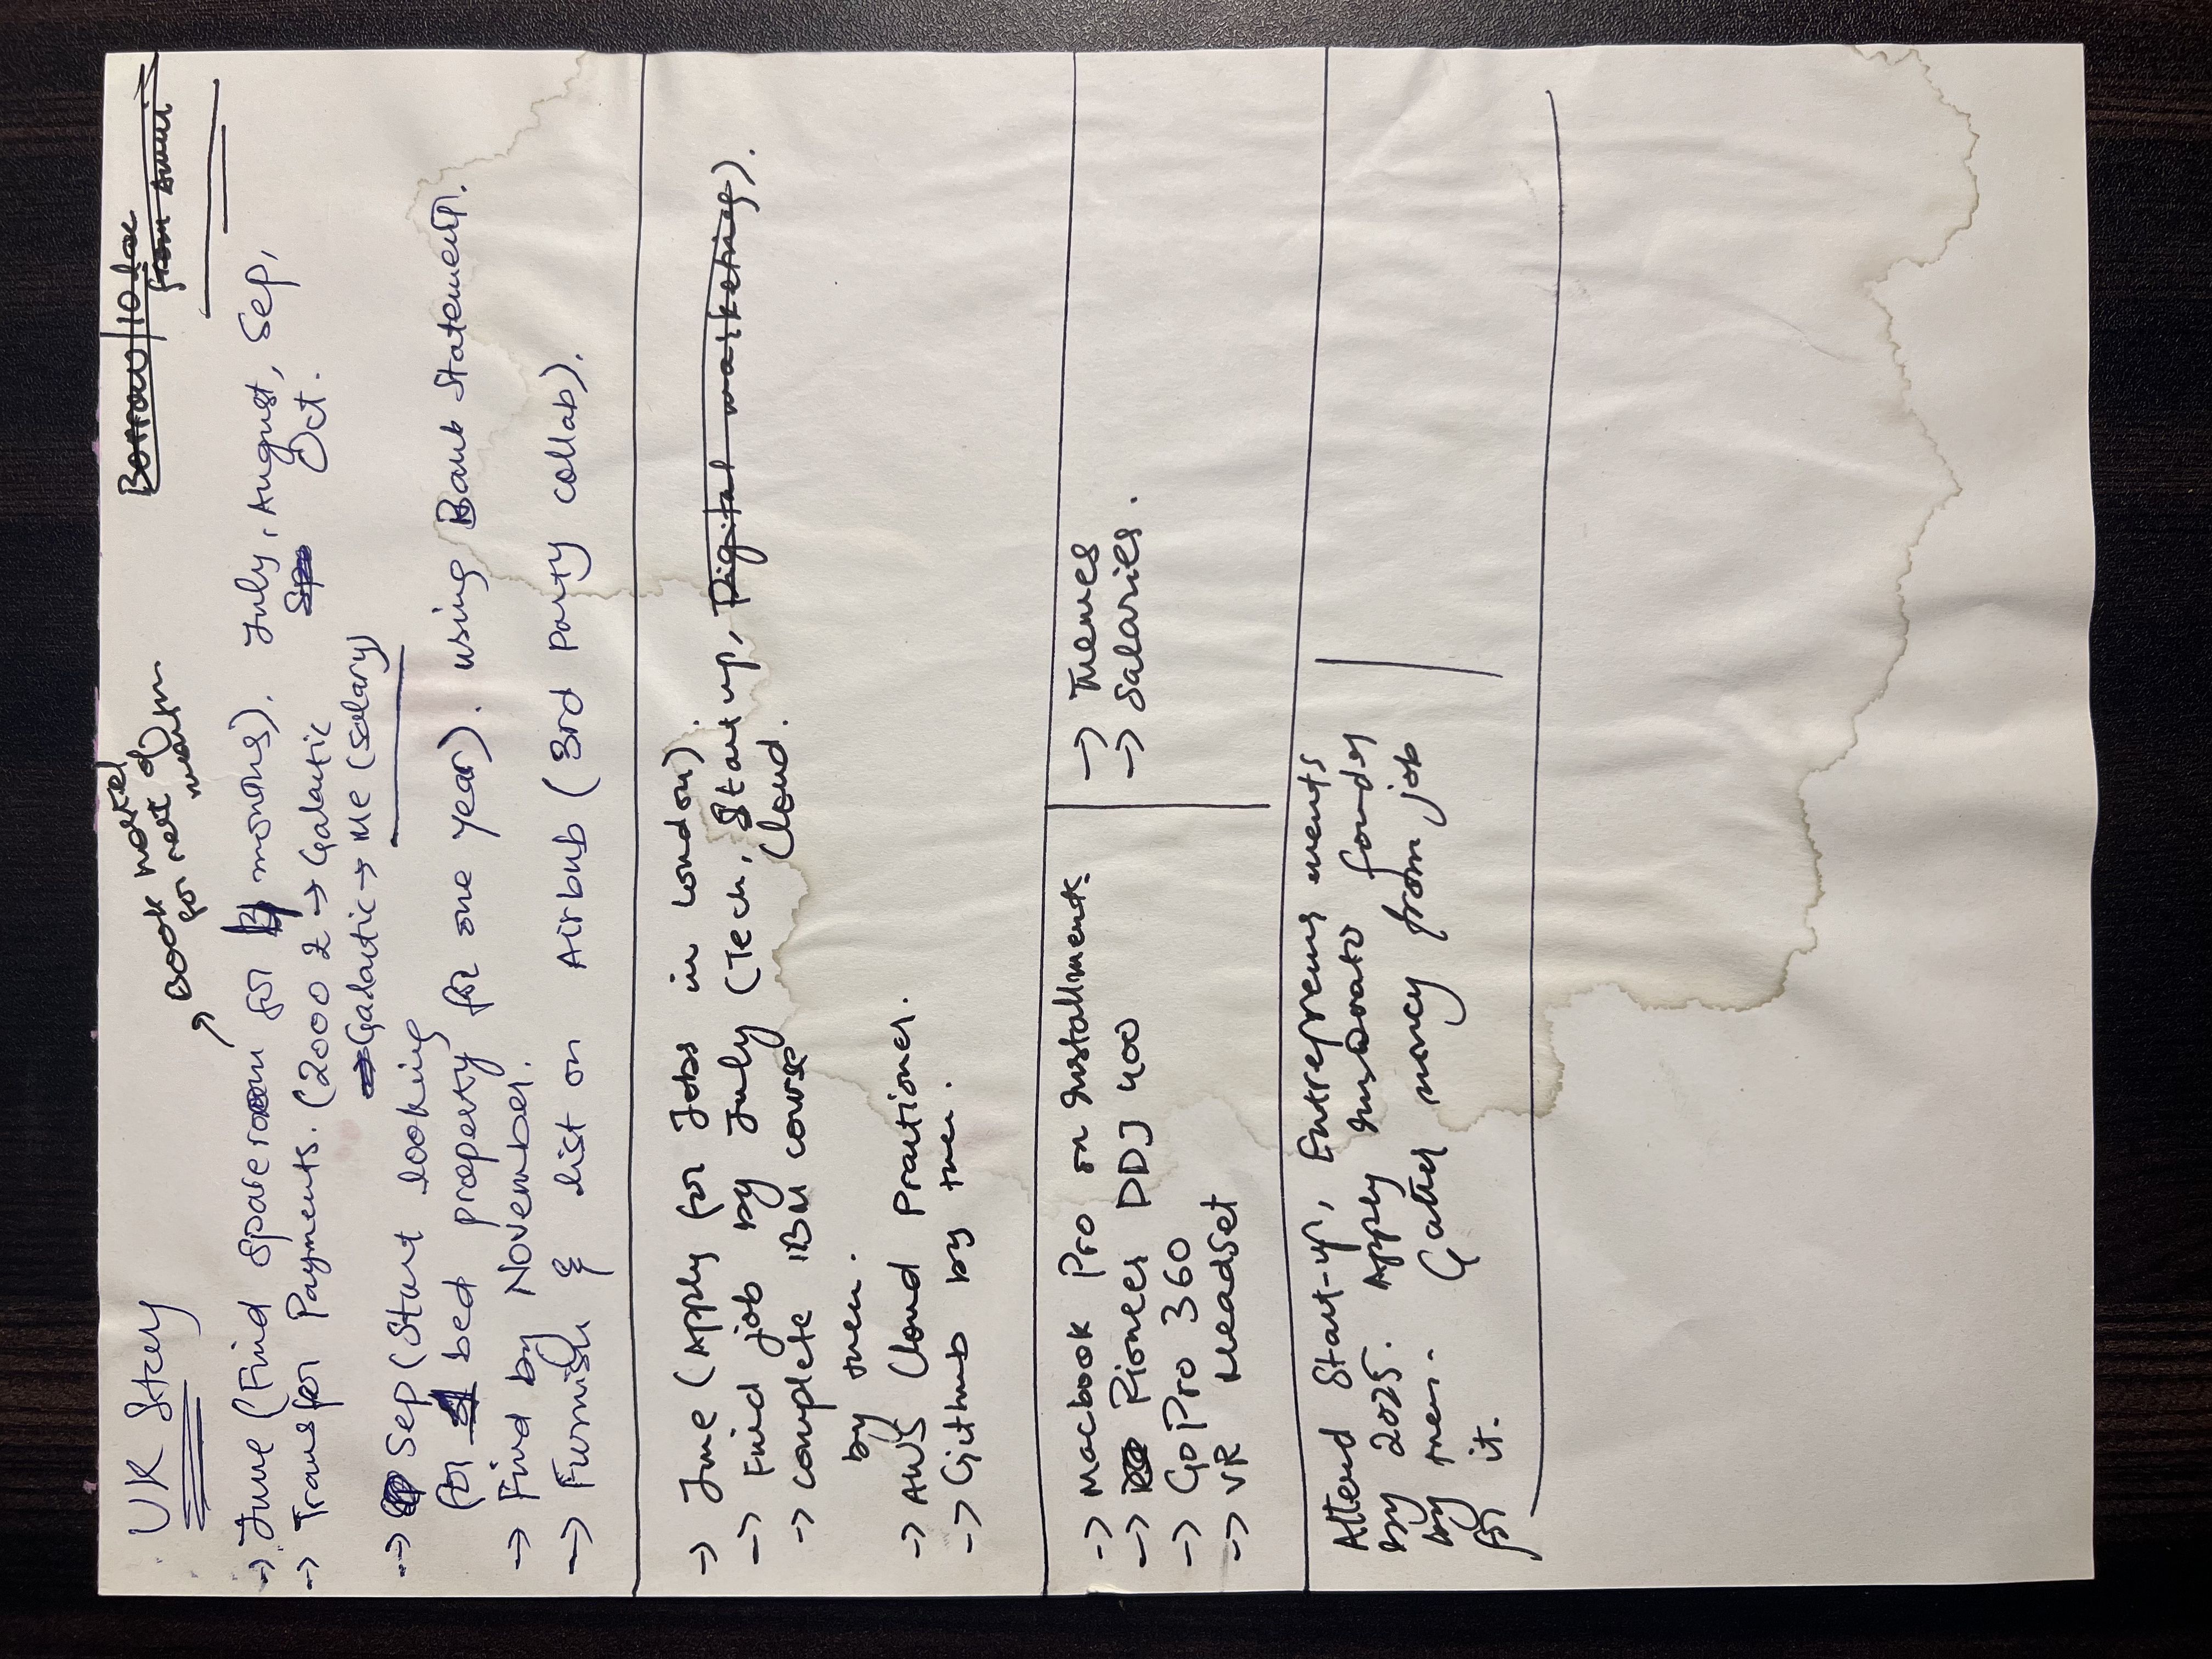 UK Stay
Book hostel
for rest of
Borrow/10
from
→ June (Find spareroom for 4 months). July, August, Sep,
→ Transfer Payments. (2000 £ → Galactic Oct.
Galactic → Me (salary)
→ Sep (Start looking
for bed property for one year). using Bank Statement.
→ Find by November.
→ Furnish & list on Airbnb (3rd Party collab).
→ June (Apply for Jobs in London)
→ Find job by July (Tech, Startup, Digital marketing).
→ complete IBM course Cloud.
by then.
→ AWS Cloud Practioner.
→ Github by then.
→ Macbook Pro on Installment.
→ Pioneer DDJ 400
→ GoPro 360
→ VR Headset
→ Themes
→ Salaries.
Attend Start-up, Entrepreneurs
by 2025. Apply founder
by then. Gather money from job
for it.